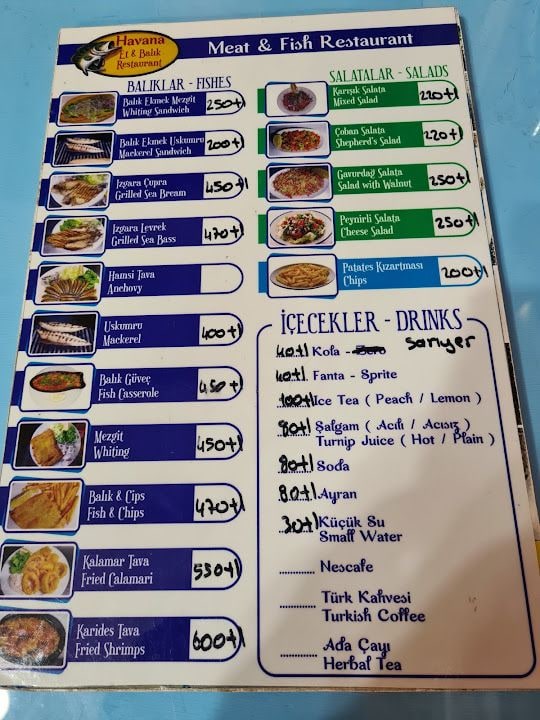 Havana
Et & Balık
Restaurant
Meat & Fish Restaurant
BALIKLAR - FISHES
Balık Ekmek Mezgit
Whiting Sandwich
250tl
Balık Ekmek Uskumru
Mackerel Sandwich
200tl
Izgara Çupra
Grilled Sea Bream
450tl
Izgara Levrek
Grilled Sea Bass
470tl
Hamsi Tava
Anchovy
Uskumru
Mackerel
400tl
Balık Güveç
Fish Casserole
450tl
Mezgit
Whiting
450tl
Balık & Cips
Fish & Chips
470tl
Kalamar Tava
Fried Calamari
550tl
Karides Tava
Fried Shrimps
600tl
SALATALAR - SALADS
Karışık Salata
Mixed Salad
220tl
Çoban Salata
Shepherd's Salad
220tl
Gavurdağ Salata
Salad with Walnut
250tl
Peynirli Salata
Cheese Salad
250tl
Patates Kızartması
Chips
200tl
İÇECEKLER - DRINKS
Kola - Sarıyer
Fanta - Sprite
100tl Ice Tea ( Peach / Lemon )
Şalgam ( Acılı / Acısız )
Turnip Juice ( Hot / Plain )
80tl Soda
80tl Ayran
30tl Küçük Su
Small Water
............ Nescafe
............ Türk Kahvesi
Turkish Coffee
............ Ada Çayı
Herbal Tea